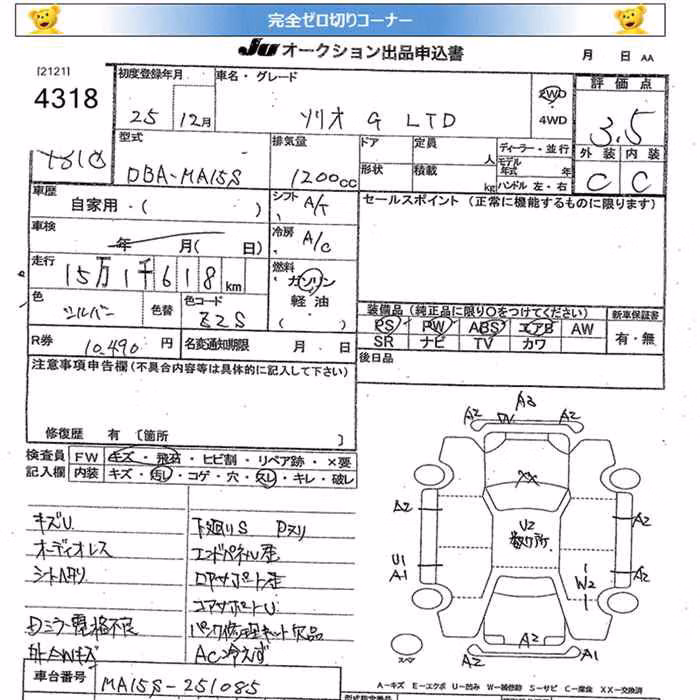 完全ゼロ切りコーナー
JU オークション出品申込書
月 日 AA
[2121]
4318
初度登録年月
25 12月
車名・グレード
ソリオ G LTD
2WD
4WD
評価点
3.5
外装 内装
C C
型式
DBA-MA15S
排気量
1200cc
ドア 定員 人
形状 積載 kg
ディーラー・並行
モデル年式 年
ハンドル 左・右
車歴
自家用・( )
シフト A/T
セールスポイント (正常に機能するものに限ります)
車検
年 月( 日)
冷房 A/C
走行
15万1千618km
燃料
ガソリン
軽油
( )
色 シルバー 色替
色コード Z2S
装備品 (純正品に限り○をつけてください)
PS PW ABS エアB AW
SR ナビ TV カワ
新車保証書
有・無
R券 10,490円
名変通知期限 月 日
後日品
注意事項申告欄(不具合内容等は具体的に記入して下さい)
修復歴 有 [箇所 ]
検査員記入欄
FW キズ・飛石・ヒビ割・リペア跡・×要
内装 キズ・汚レ・コゲ・穴・スレ・キレ・破レ
キズU
オーディオレス
シートヘタリ
Dミラー電格不良
外AWキズ
下廻りS Pヌリ
エンドパネル歪
ロアサポート歪
コアサポートU
パンク修理キット欠品
AC冷えず
車台番号 MA15S-251085
A2 A3 A2
XX
A2
U1
A1
U2
A2
W2
A2
A2
A2 A1
スペア
A-キズ E-エクボ U-凹み W-補修跡 S-サビ C-腐食 XX-交換済
型式指定番号